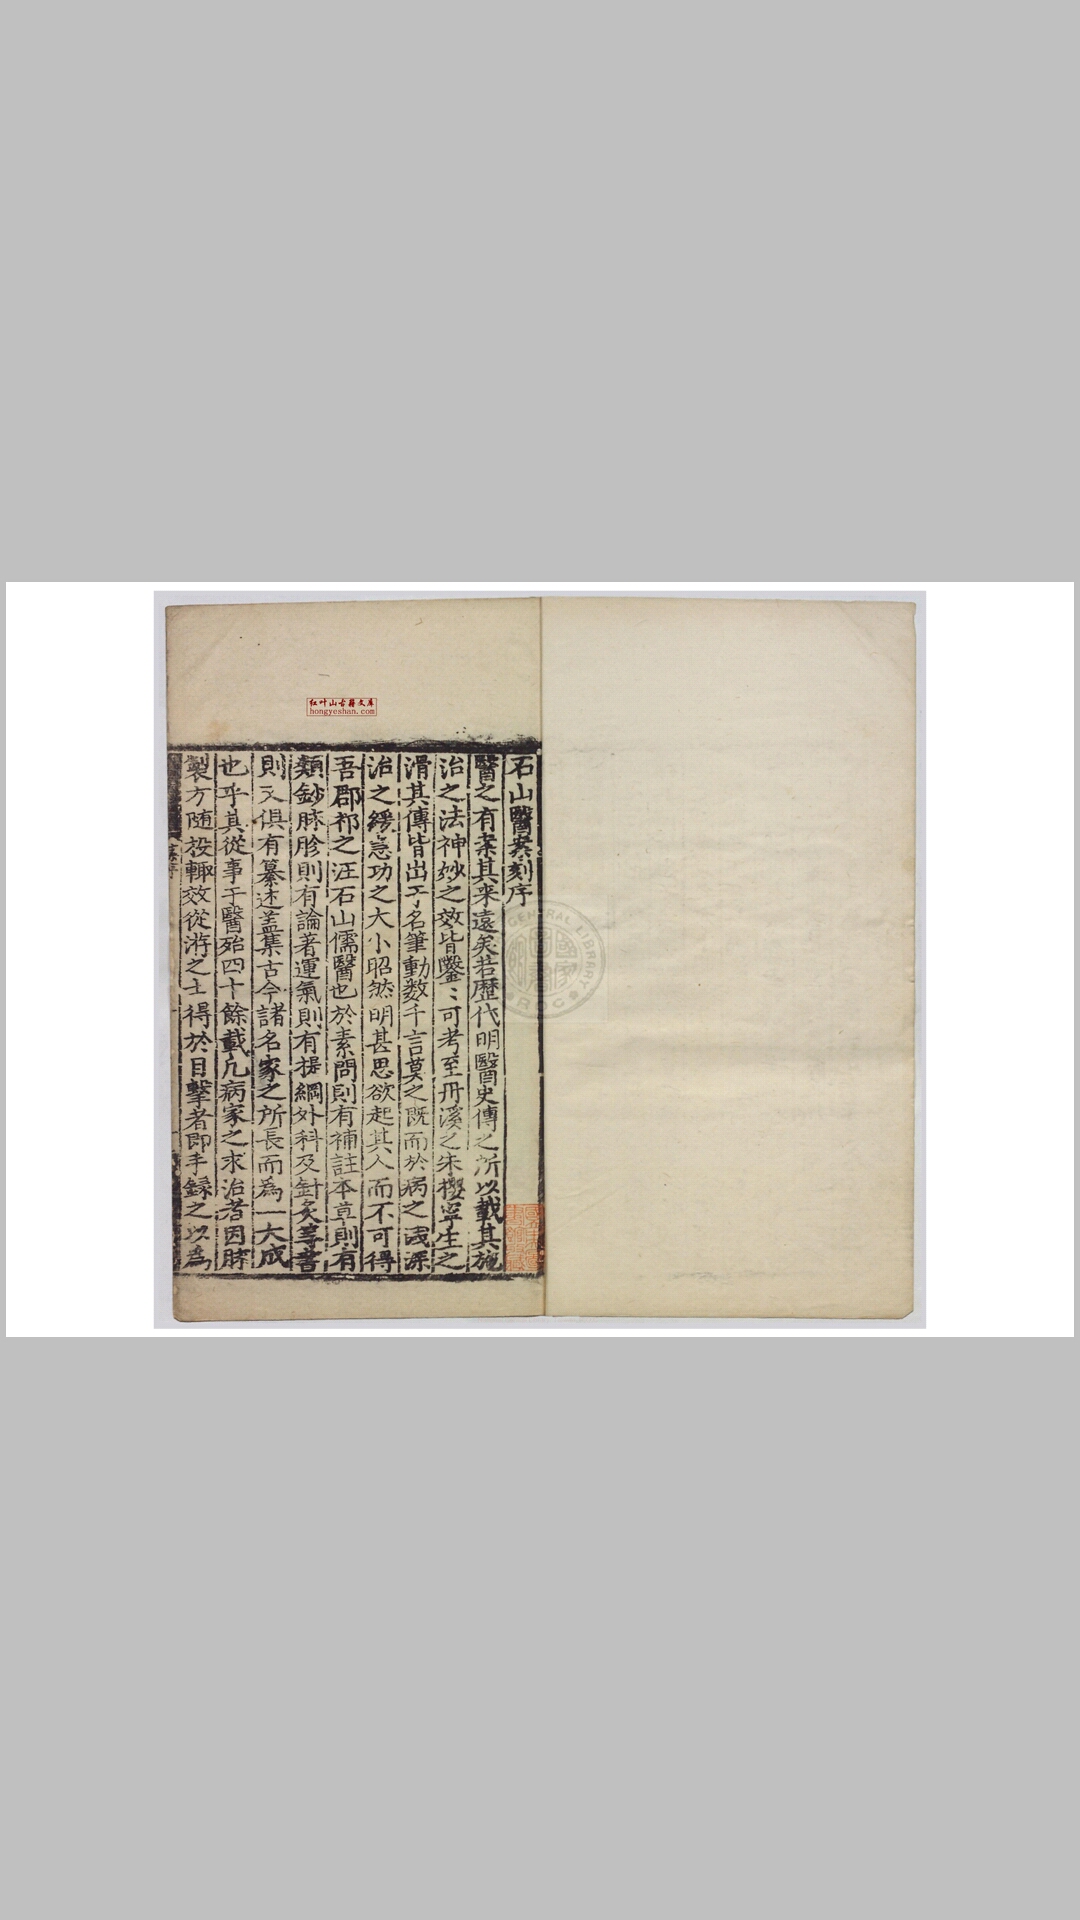 石山醫案刻序
醫之有案其来遠矣若歷代明醫史傳之所以載其施
治之法神妙之效皆鑿〻可考至丹溪之朱攖寧生之
滑其傳皆出于名筆動数千言莫之既而於病之淺深
治之緩急功之大小昭然明甚思欲起其人而不可得
吾郡祁之汪石山儒醫也於素問則有補註本草則有
類鈔脉胗則有論著運氣則有提綱外科及針灸等書
則又俱有纂述盖集古今諸名家之所長而為一大成
也乎其從事于醫殆四十餘載凡病家之求治者因脉
製方随投輙效從游之士得於目擊者即手錄之以為
红叶山古籍文库
hongyeshan.com
CENTRAL LIBRARY
ROC